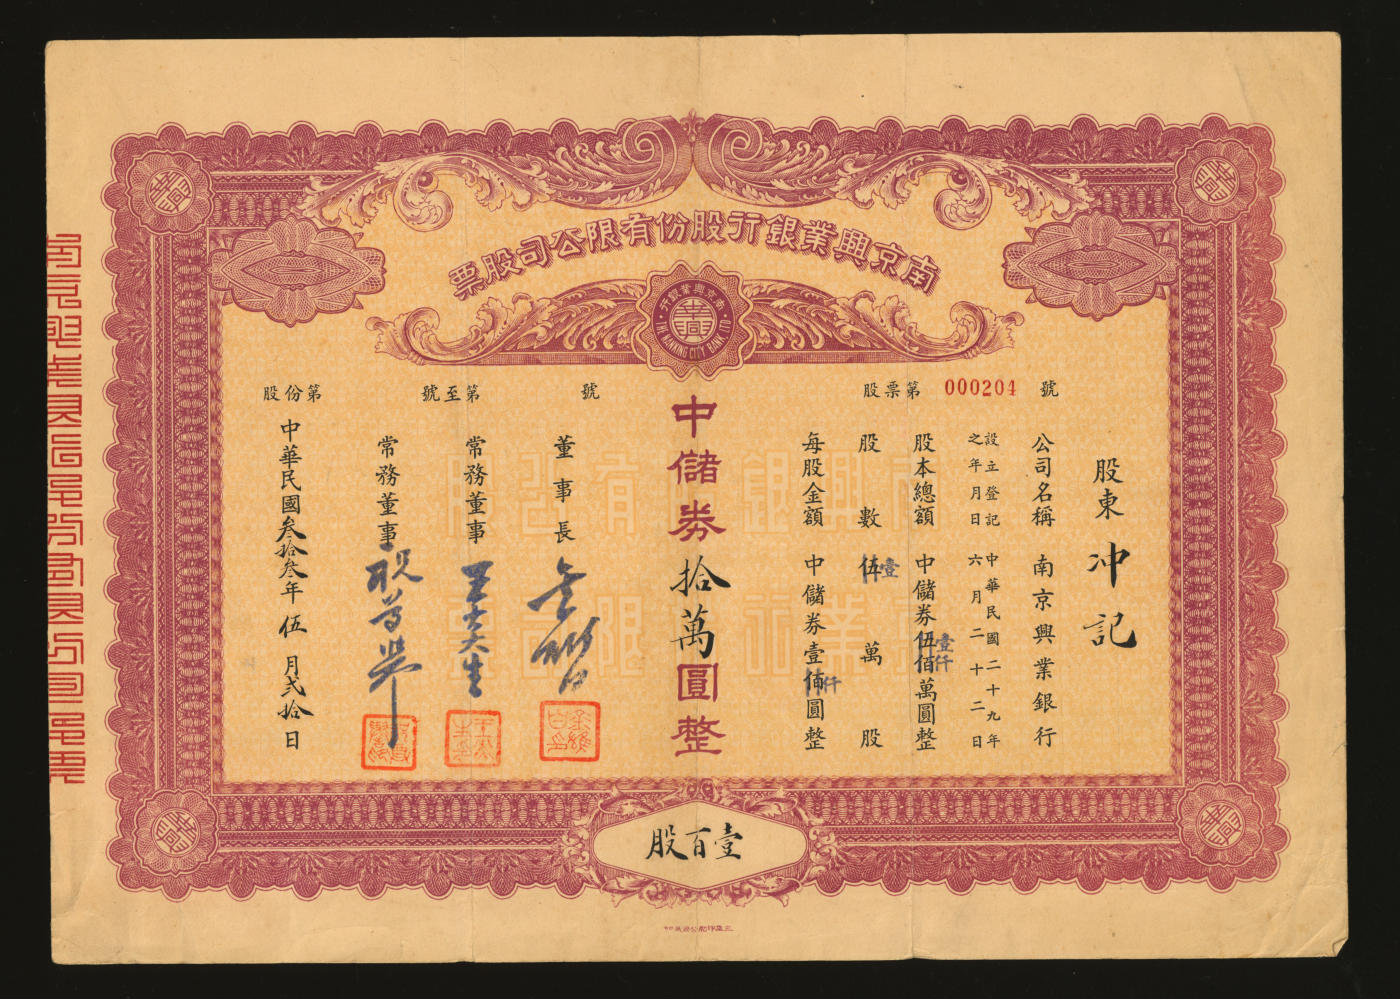 南京興業銀行股份有限公司股票
南京興業銀行
THE NANKING CITY BANK LTD
股票第 000204 號
股份第 號至第 號
股東 冲記
公司名稱 南京興業銀行
設立登記之年月日 中華民國二十九年六月二十二日
股本總額 中儲券伍佰萬圓整
壹仟
股數 伍萬股
壹
每股金額 中儲券壹佰圓整
仟
中儲券拾萬圓整
董事長
常務董事 王
常務董事
中華民國叁拾叁年伍月弍拾日
壹百股